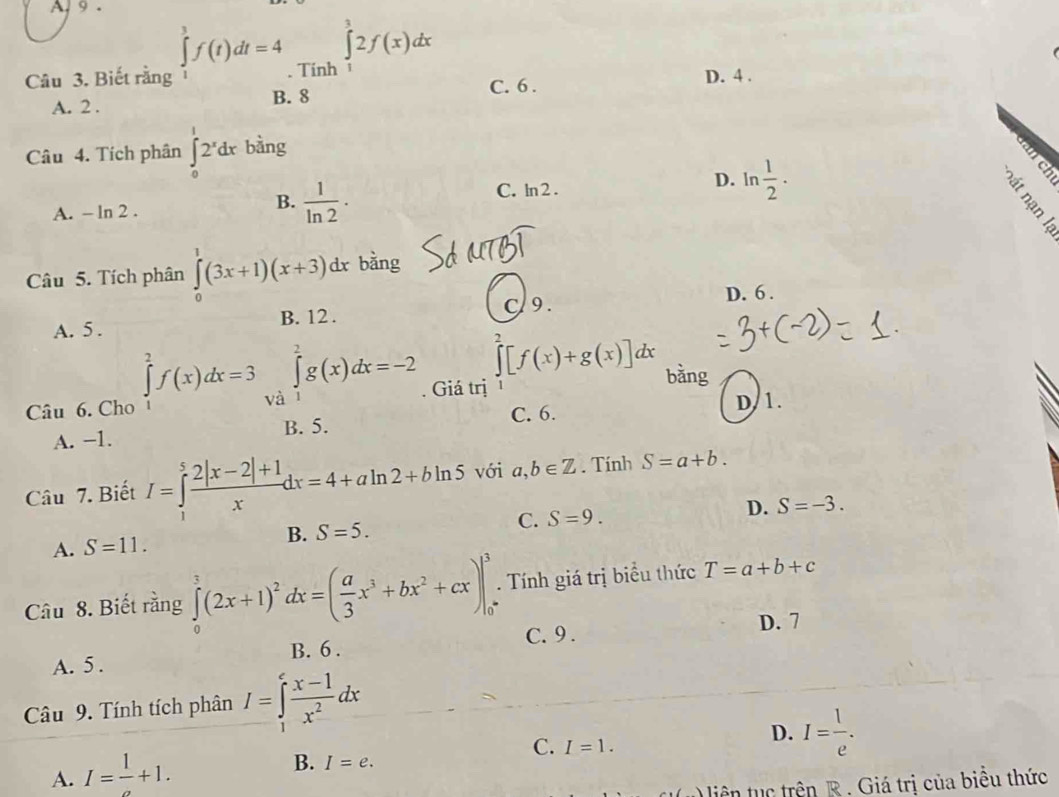 A. 9.
Câu 3. Biết rằng $\int_1^3 f(t)dt = 4$. Tính $\int_1^3 2f(x)dx$
A. 2. B. 8 C. 6. D. 4.
Câu 4. Tích phân $\int_0^1 2^x dx$ bằng
A. $-\ln 2$. B. $\frac{1}{\ln 2}$. C. $\ln 2$. D. $\ln \frac{1}{2}$.
Câu 5. Tích phân $\int_0^1 (3x+1)(x+3)dx$ bằng
A. 5. B. 12. C. 9. D. 6.
= 3 + (-2) = 1.
Câu 6. Cho $\int_1^2 f(x)dx = 3$ và $\int_1^2 g(x)dx = -2$. Giá trị $\int_1^2 [f(x)+g(x)]dx$ bằng
A. −1. B. 5. C. 6. D. 1.
Câu 7. Biết $I = \int_1^5 \frac{2|x-2|+1}{x}dx = 4 + a\ln 2 + b\ln 5$ với $a,b \in \mathbb{Z}$. Tính $S = a + b$.
A. $S = 11$. B. $S = 5$. C. $S = 9$. D. $S = -3$.
Câu 8. Biết rằng $\int_0^3 (2x+1)^2 dx = \left(\frac{a}{3}x^3 + bx^2 + cx\right)\Big|_0^3$. Tính giá trị biểu thức $T = a + b + c$
A. 5. B. 6. C. 9. D. 7
Câu 9. Tính tích phân $I = \int_1^e \frac{x-1}{x^2}dx$
A. $I = \frac{1}{e} + 1$. B. $I = e$. C. $I = 1$. D. $I = \frac{1}{e}$.
liên tục trên ℝ. Giá trị của biểu thức